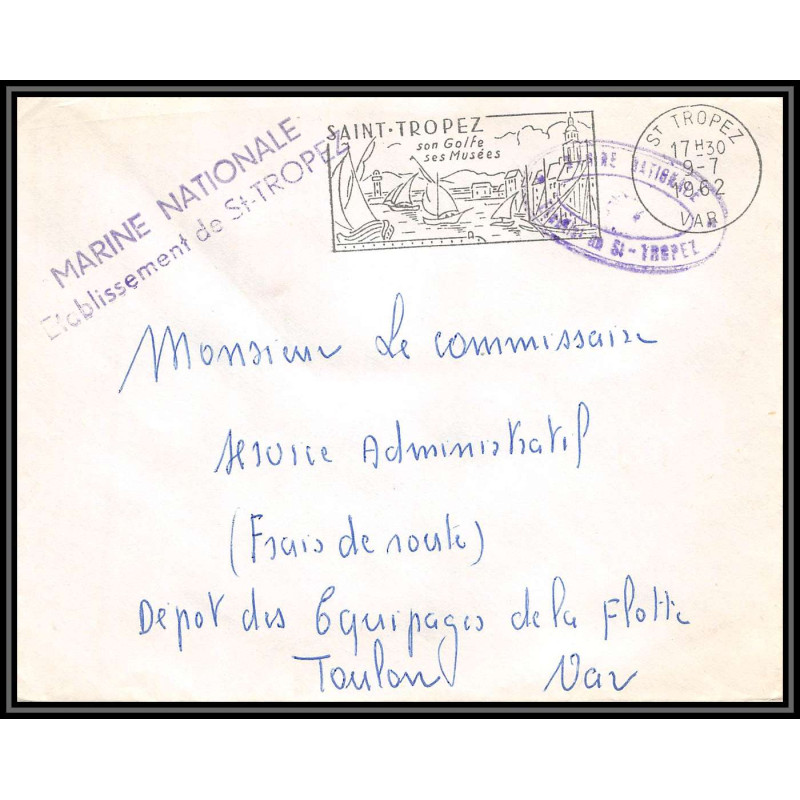 MARINE NATIONALE
Etablissement de St-TROPEZ
SAINT-TROPEZ
son Golfe
ses Musées
NATIONALE
St-TROPEZ
ST TROPEZ
17H30
9-7
1962
VAR
Monsieur Le commissaire
service Administratif
(Frais de route)
Dépot des Equipages de la Flotte
Toulon Var